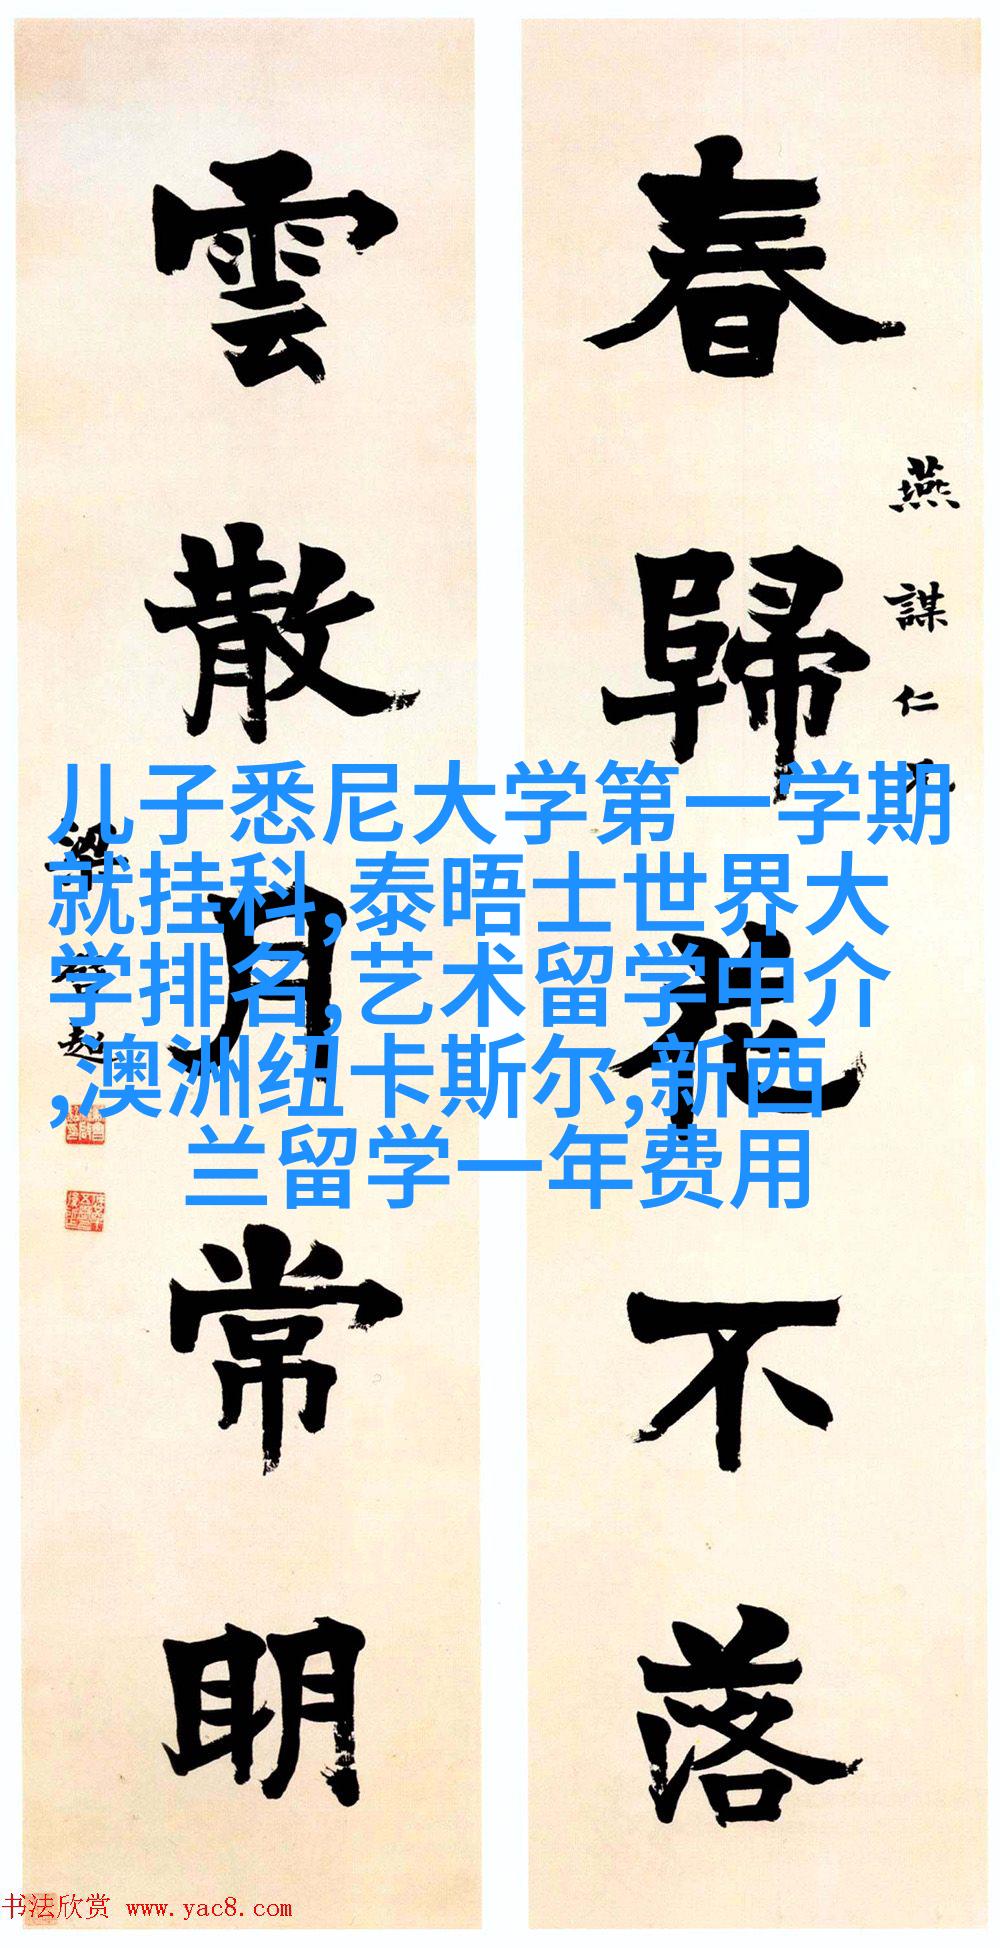 春歸花不落
燕謀仁兄
雲散月常明
梁啟超
儿子悉尼大学第一学期
就挂科,泰晤士世界大
学排名,艺术留学中介
,澳洲纽卡斯尔,新西
兰留学一年费用
书法欣赏 www.yac8.com